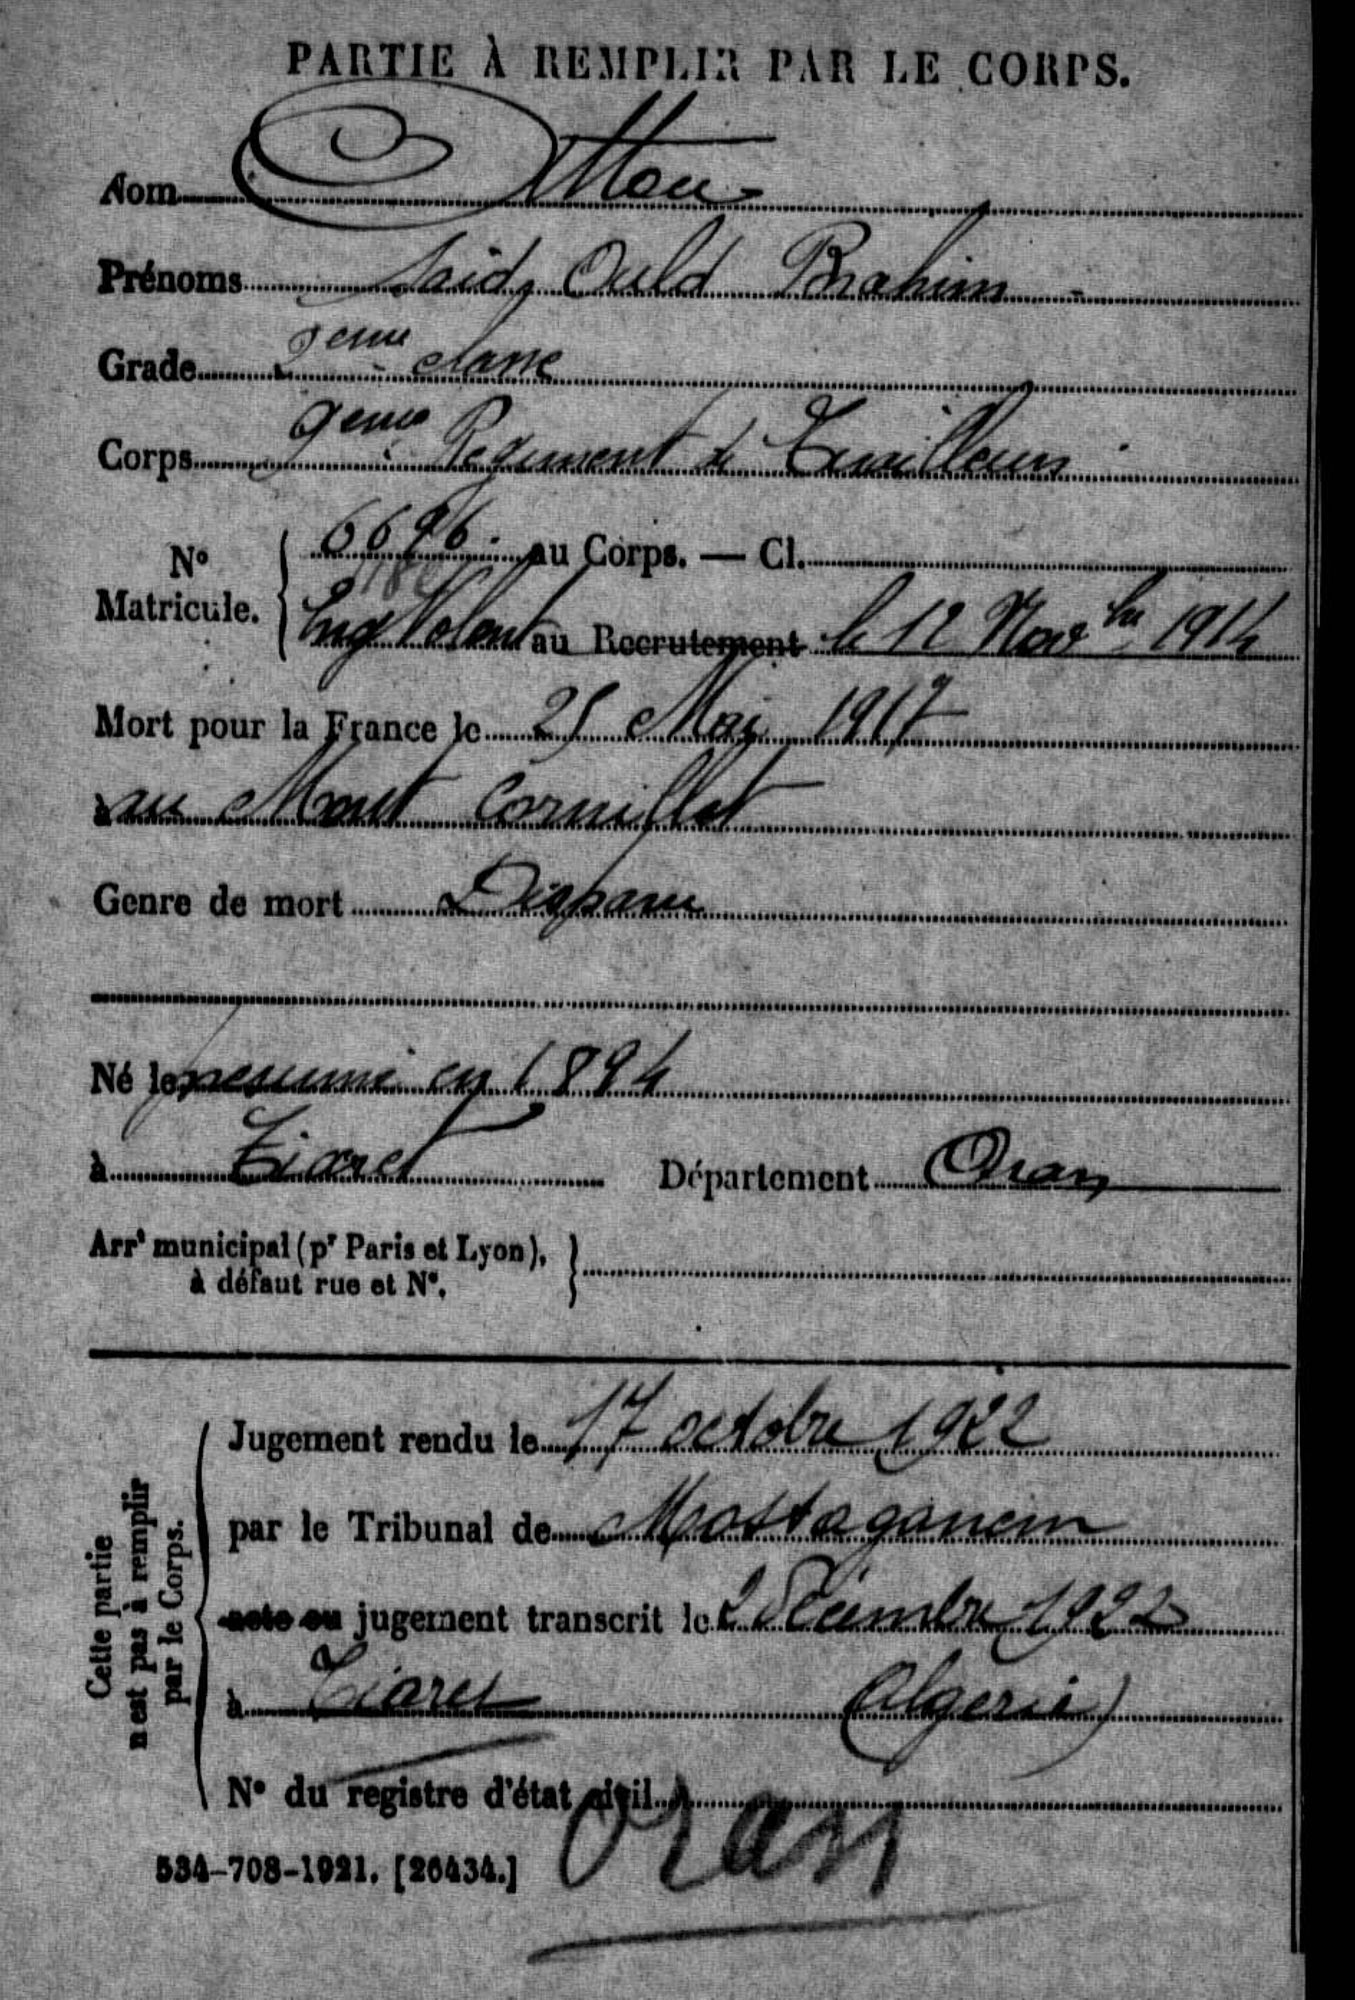 PARTIE À REMPLIR PAR LE CORPS.
Nom Attou
Prénoms Said, Ould Brahim
Grade 2eme classe
Corps 9eme Régiment de Tirailleurs
N° Matricule. 6696. au Corps. — Cl.
Eng Volont au Recrutement le 12 Novbre 1914
Mort pour la France le 25 Mai 1917
à au Mont Cornillet
Genre de mort Disparu
Né le présumé en 1894
à Tiaret Département Oran
Arrt municipal (pr Paris et Lyon),
à défaut rue et N°.
Cette partie
n'est pas à remplir
par le Corps.
Jugement rendu le 17 octobre 1922
par le Tribunal de Mostaganem
acte ou jugement transcrit le 2 Décembre 1922
à Tiaret (Algérie)
N° du registre d'état civil
Oran
534-708-1921. [26434.]